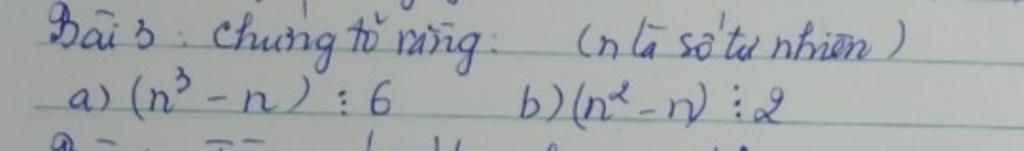 Bài 3 : Chứng tỏ rằng: (n là số tự nhiên)
a) (n³ - n) ⋮ 6 b) (n² - n) ⋮ 2